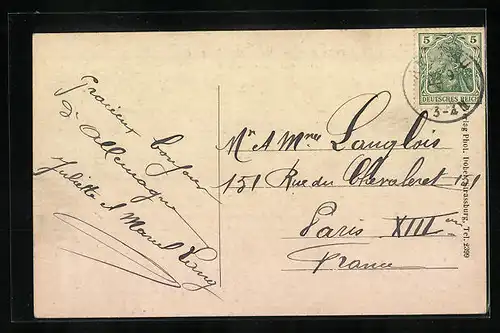 Gracieux bonjour
d'Allemagne
Juliette et Marcel Lung
Mr & Mme Langlois
151 Rue du Chevaleret 151
Paris XIIIe
France
5 5
DEUTSCHES REICH
3-4
Phot. Strassburg, Tel. 2399